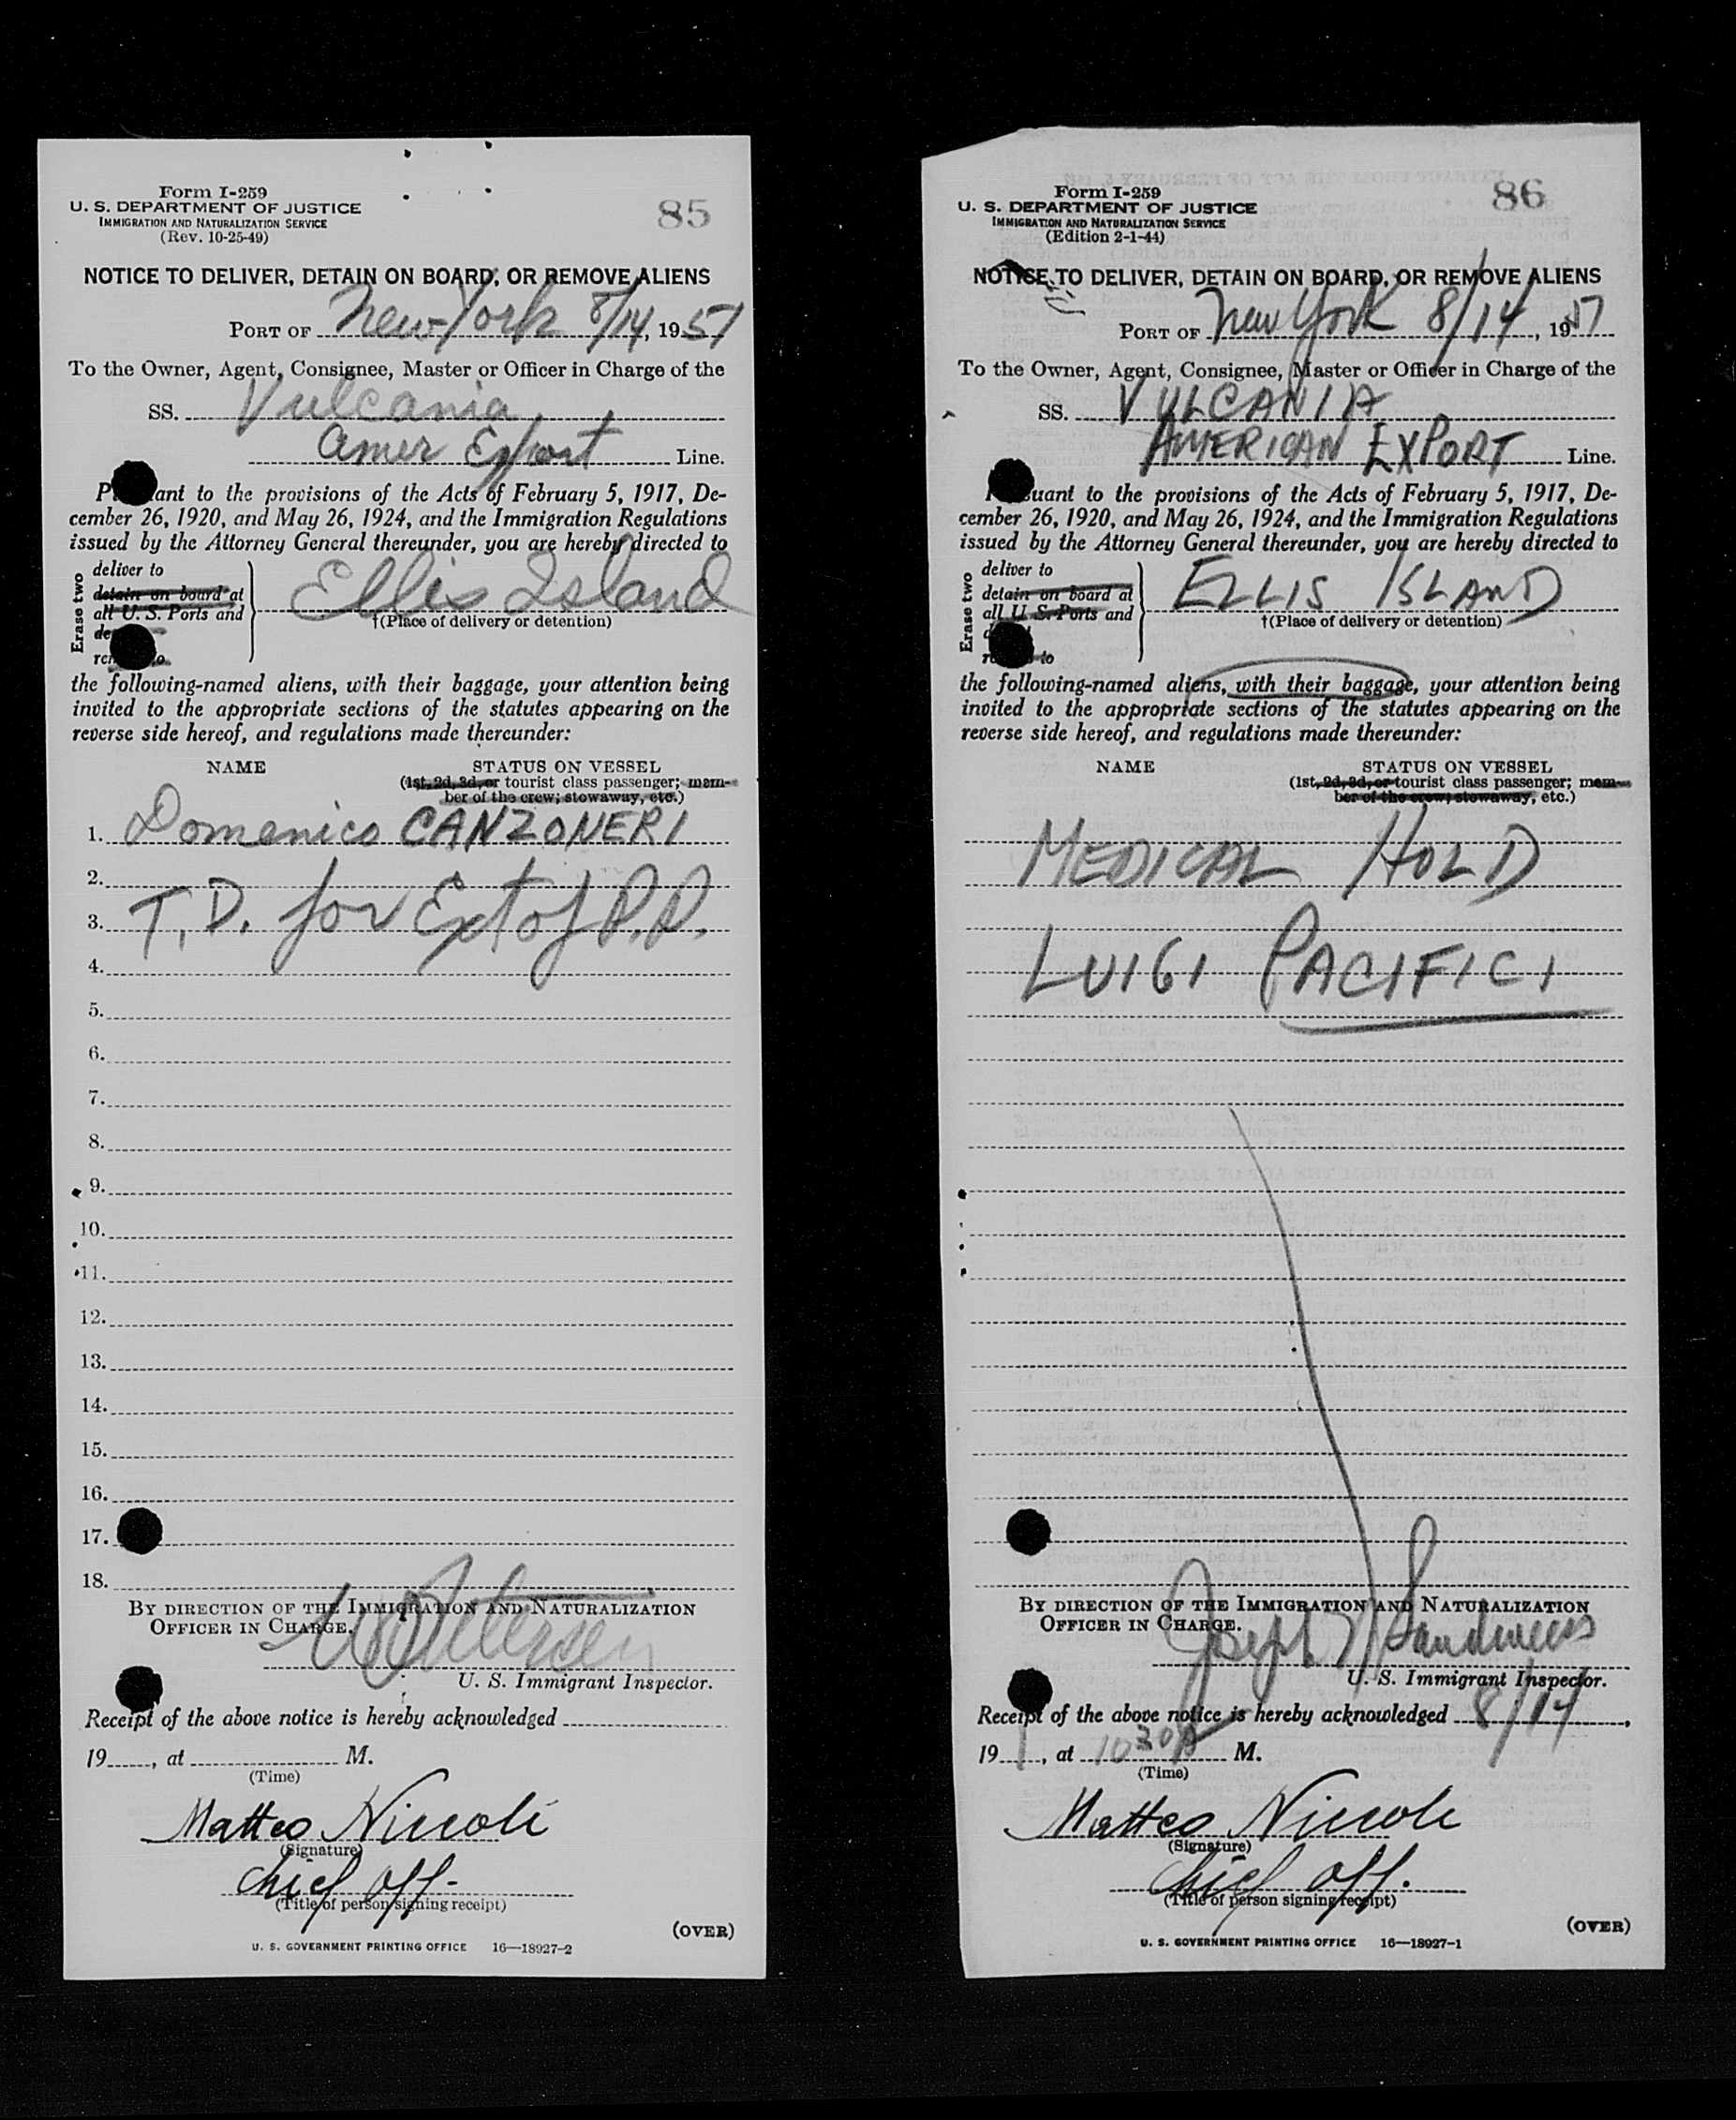 Form I-259
U. S. DEPARTMENT OF JUSTICE
IMMIGRATION AND NATURALIZATION SERVICE
(Rev. 10-25-49)
85
NOTICE TO DELIVER, DETAIN ON BOARD, OR REMOVE ALIENS
PORT OF New York 8/14, 1951
To the Owner, Agent, Consignee, Master or Officer in Charge of the
SS. Vulcania
Amer Export Line.
Pursuant to the provisions of the Acts of February 5, 1917, De-
cember 26, 1920, and May 26, 1924, and the Immigration Regulations
issued by the Attorney General thereunder, you are hereby directed to
Erase two
deliver to
detain on board at
all U. S. Ports and
Ellis Island
†(Place of delivery or detention)
the following-named aliens, with their baggage, your attention being
invited to the appropriate sections of the statutes appearing on the
reverse side hereof, and regulations made thereunder:
NAME STATUS ON VESSEL
(1st, 2d, 3d, or tourist class passenger; mem-
ber of the crew; stowaway, etc.)
1. Domenico CANZONERI
2.
3. T.D. for Ext of P.P.
4.
5.
6.
7.
8.
9.
10.
11.
12.
13.
14.
15.
16.
17.
18.
BY DIRECTION OF THE IMMIGRATION AND NATURALIZATION
OFFICER IN CHARGE.
Petersen
U. S. Immigrant Inspector.
Receipt of the above notice is hereby acknowledged
19, at M.
(Time)
Matteo Niccoli
(Signature)
Chief Off.
(Title of person signing receipt)
(OVER)
U. S. GOVERNMENT PRINTING OFFICE 16—18927-2
Form I-259
U. S. DEPARTMENT OF JUSTICE
IMMIGRATION AND NATURALIZATION SERVICE
(Edition 2-1-44)
86
NOTICE TO DELIVER, DETAIN ON BOARD, OR REMOVE ALIENS
PORT OF New York 8/14, 19
To the Owner, Agent, Consignee, Master or Officer in Charge of the
SS. VULCANIA
AMERICAN EXPORT Line.
Pursuant to the provisions of the Acts of February 5, 1917, De-
cember 26, 1920, and May 26, 1924, and the Immigration Regulations
issued by the Attorney General thereunder, you are hereby directed to
Erase two
deliver to
detain on board at
all U. S. Ports and
to
ELLIS ISLAND
†(Place of delivery or detention)
the following-named aliens, with their baggage, your attention being
invited to the appropriate sections of the statutes appearing on the
reverse side hereof, and regulations made thereunder:
NAME STATUS ON VESSEL
(1st, 2d, 3d, or tourist class passenger; mem-
ber of the crew; stowaway, etc.)
MEDICAL HOLD
LUIGI PACIFICI
BY DIRECTION OF THE IMMIGRATION AND NATURALIZATION
OFFICER IN CHARGE.
Joseph
U. S. Immigrant Inspector.
Receipt of the above notice is hereby acknowledged 8/14,
19, at 1030A M.
(Time)
Matteo Niccoli
(Signature)
Chief Off.
(Title of person signing receipt)
(OVER)
U. S. GOVERNMENT PRINTING OFFICE 16—18927-1